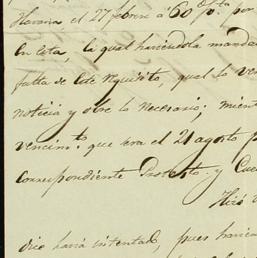 Havana el 27 febrero á 60 d/v. por
En esta, la qual haviendola manda
falta de este requisito, qual la ven
noticia y obre lo necesario; mient
vencim.to que sera el 21 agosto p
correspondiente Protesto. y Cue
Hizo
dico havia intentado, pues havien